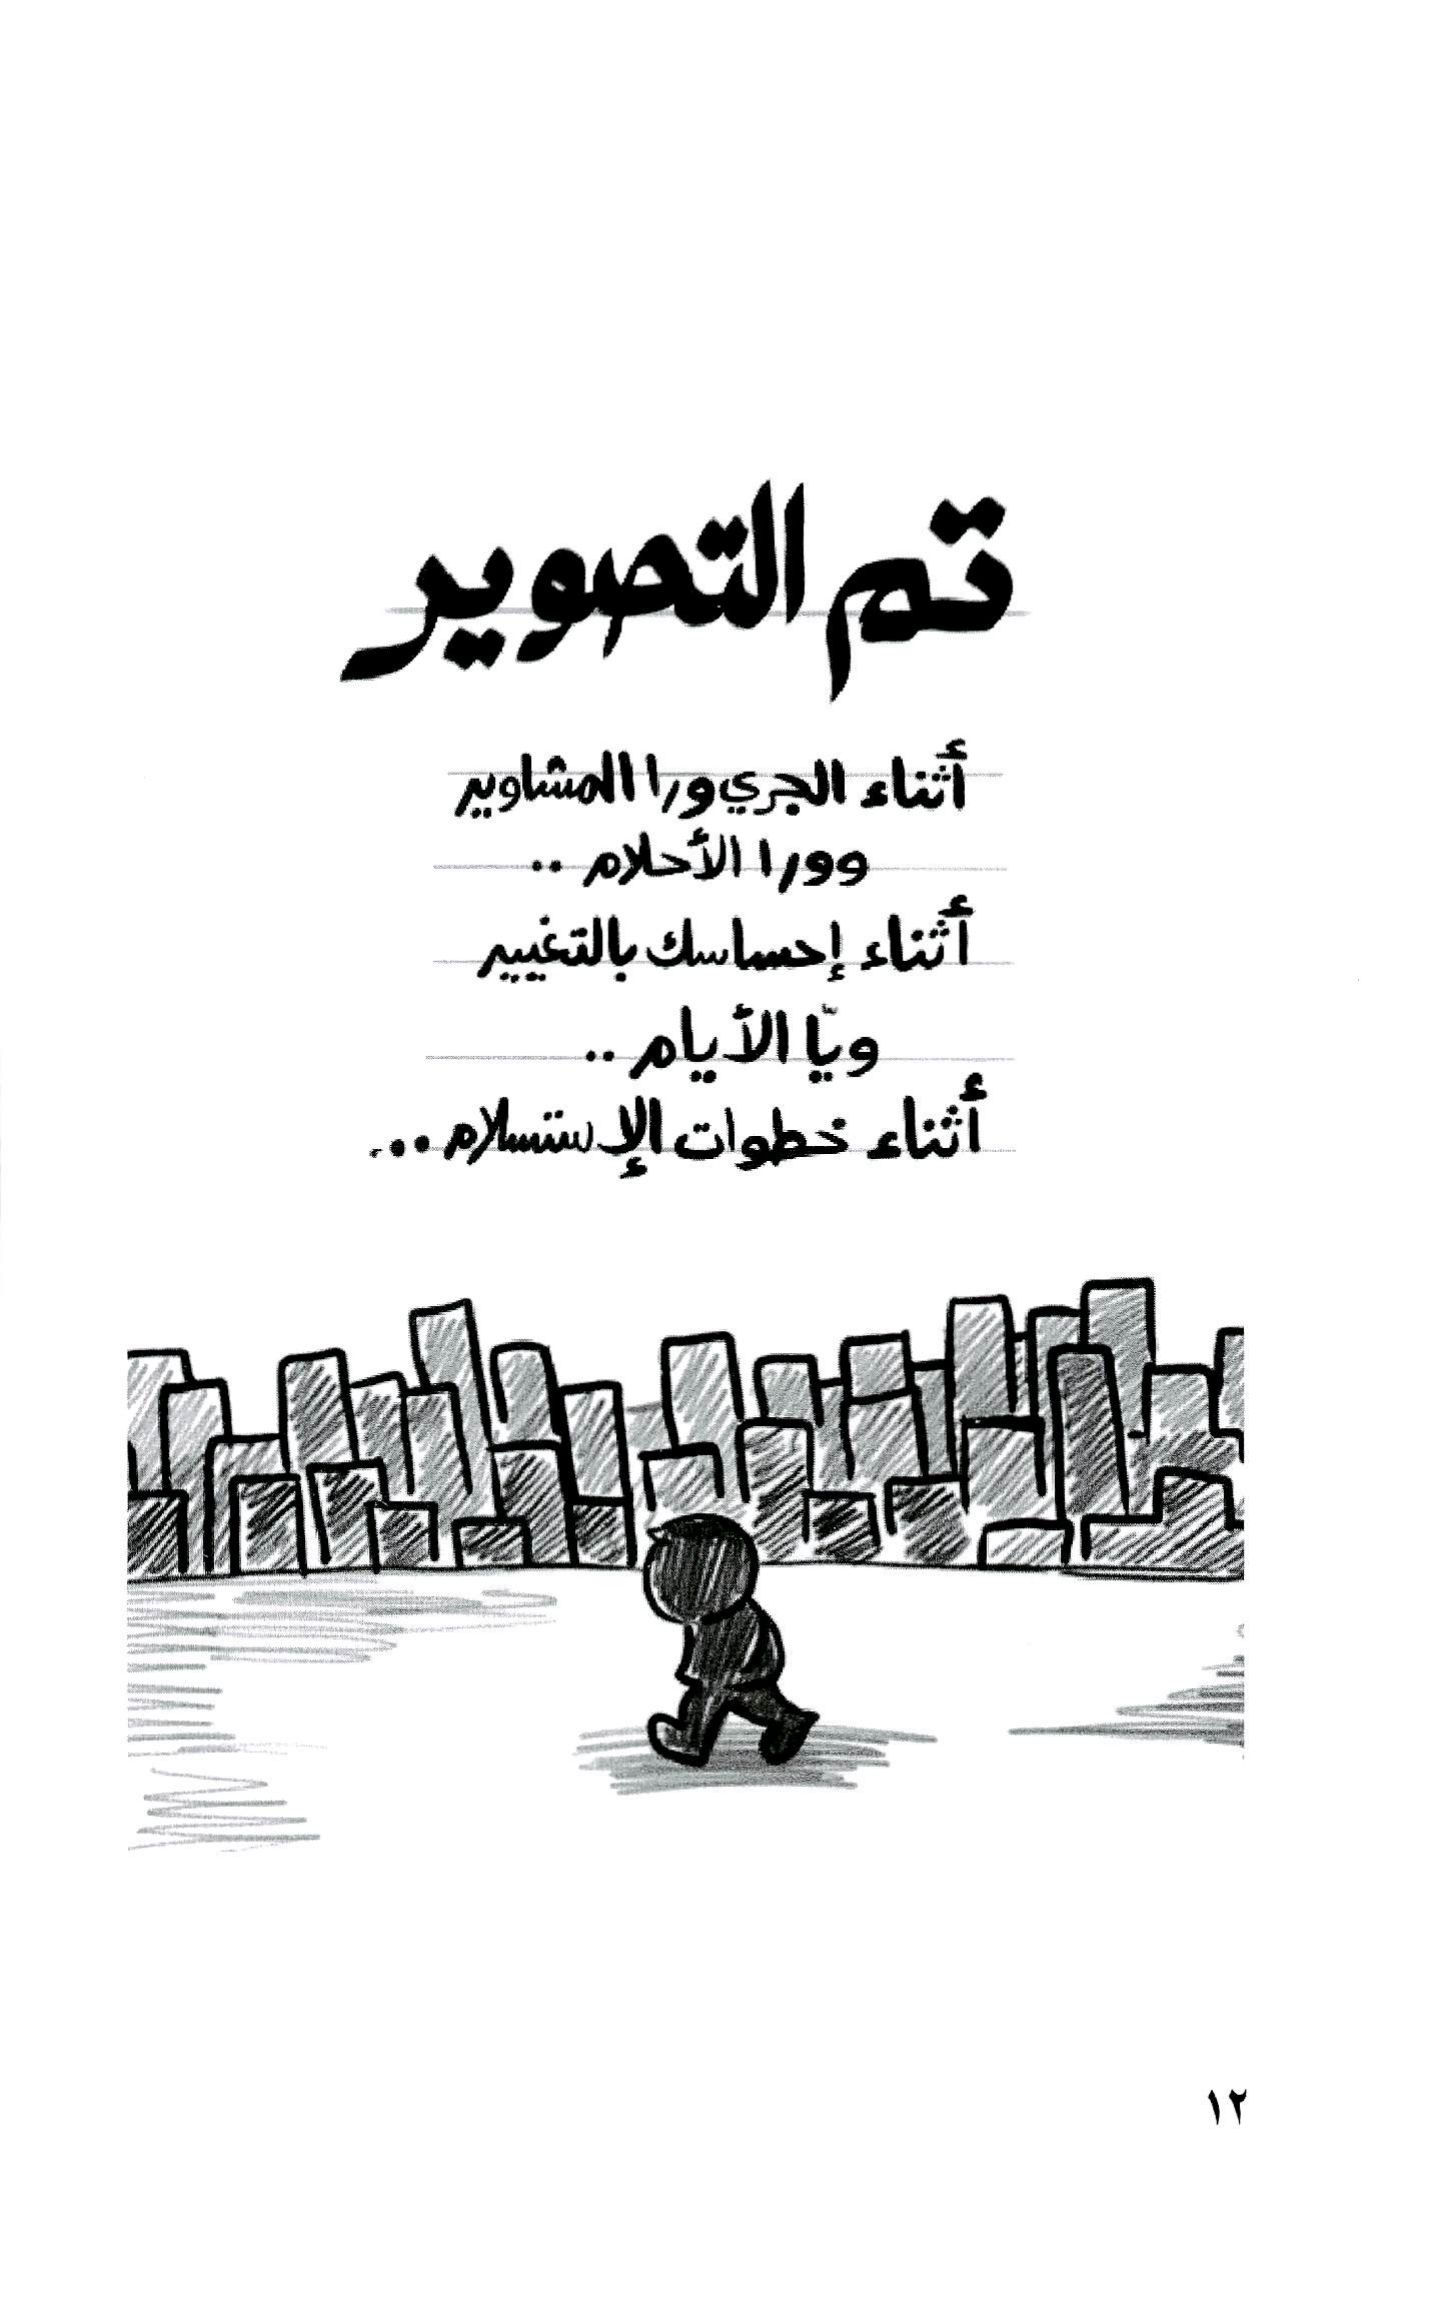 تم التصوير
أثناء الجري ورا المشاوير
وورا الأحلام ..
أثناء إحساسك بالتغيير
ويّا الأيام ..
أثناء خطوات الإستسلام ...
١٢